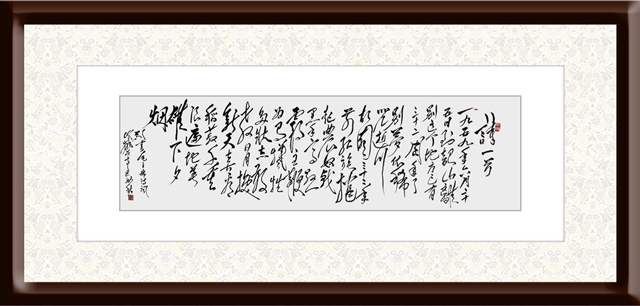 詩一首
一九五九年六月二十
五日到韶山離
別這个地方已有
三十二周年了
別夢依稀
咒逝川
故園三十二年
前紅旗捲
起農奴戟
黑手高懸
霸主鞭
为有犧牲
多壯志敢
教日月換
新天喜看
稻菽千重
浪遍地英
雄下夕
烟